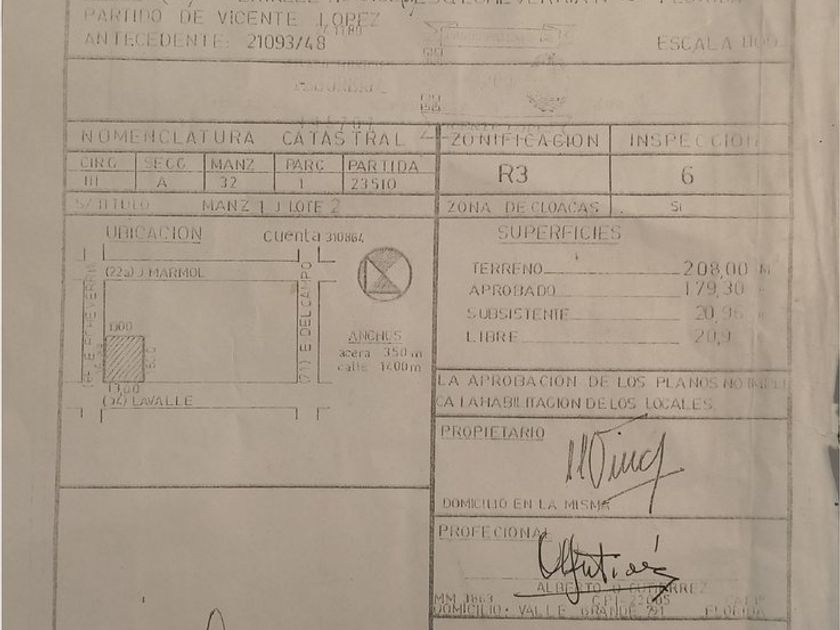 PARTIDO DE VICENTE LOPEZ
ANTECEDENTE: 21093/48
ESCALA
NOMENCLATURA CATASTRAL
ZONIFICACION
INSPECCION
CIRC SECC MANZ PARC PARTIDA
III A 32 1 23510
R3
6
S/TITULO MANZ 1 J LOTE 2
ZONA DE CLOACAS
SI
UBICACION
cuenta 310864
(22a) J MARMOL
E ECHEVERRIA
(71) E DEL CAMPO
1300
13,00
(54) LAVALLE
ANCHOS
acera 350 m
calle 1400 m
SUPERFICIES
TERRENO 208,00 M
APROBADO 179,30
SUBSISTENTE 20,96
LIBRE 20,9
LA APROBACION DE LOS PLANOS NO IMPLI
CA LA HABILITACION DE LOS LOCALES
PROPIETARIO
DOMICILIO EN LA MISMA
PROFECIONAL
ALBERTO O GUTIERREZ
MM 3863
DOMICILIO: VALLE GRANDE 791 FLORIDA